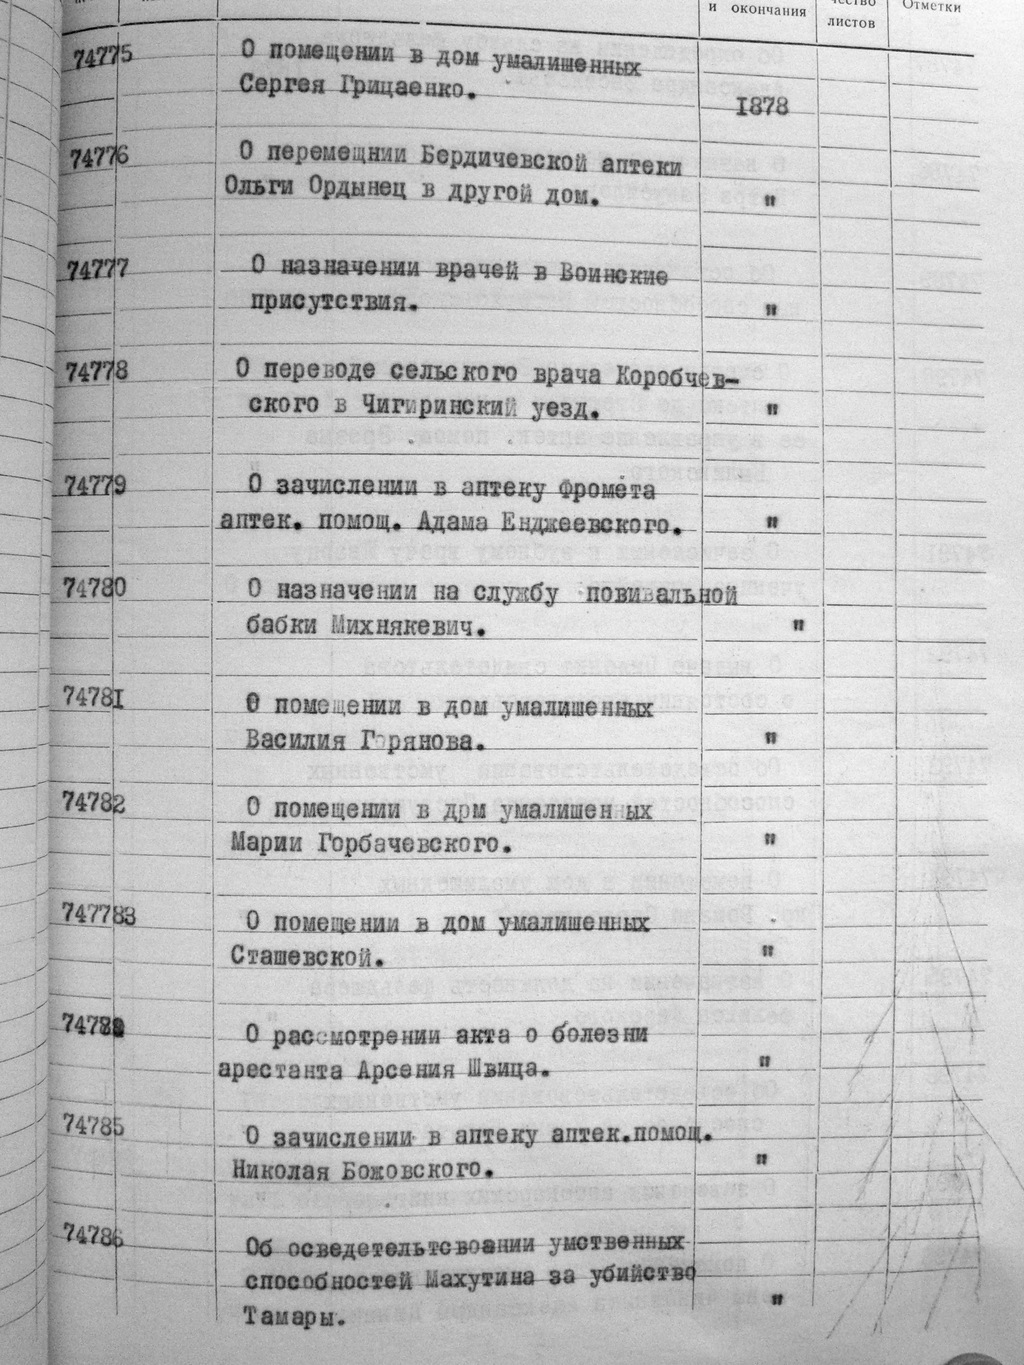 и окончания
чество
листов
Отметки
74775
О помещении в дом умалишенных
Сергея Грицаенко.
1878
74776
О перемещнии Бердичевской аптеки
Ольги Ордынец в другой дом.
"
74777
О назначении врачей в Воинские
присутствия.
"
74778
О переводе сельского врача Коробчев-
ского в Чигиринский уезд.
"
74779
О зачислении в аптеку Фромета
аптек. помощ. Адама Енджеевского.
"
74780
О назначении на службу повивальной
бабки Михнякевич.
"
74781
О помещении в дом умалишенных
Василия Горянова.
"
74782
О помещении в дрм умалишен ых
Марии Горбачевского.
"
747783
О помещении в дом умалишенных
Сташевской.
"
О рассмотрении акта о болезни
арестанта Арсения Швица.
"
74785
О зачислении в аптеку аптек.помощ.
Николая Божовского.
"
74786
Об осведетельтсвоании умственных
способностей Махутина за убийство
Тамары.
"